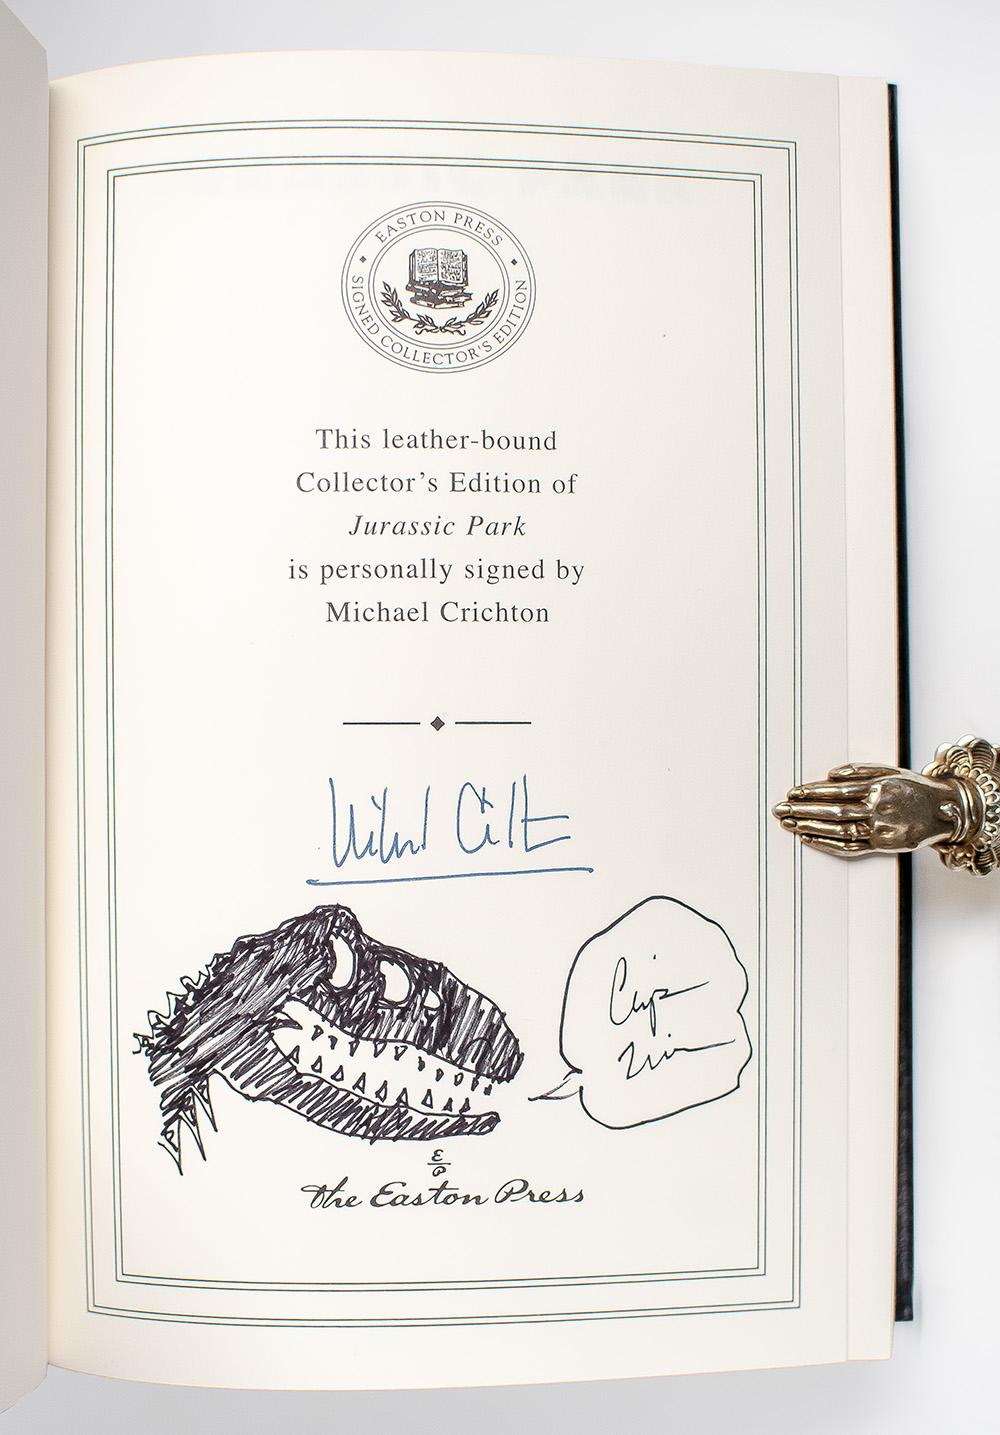 EASTON PRESS
SIGNED COLLECTOR'S EDITION
This leather-bound
Collector's Edition of
Jurassic Park
is personally signed by
Michael Crichton
E
P
The Easton Press